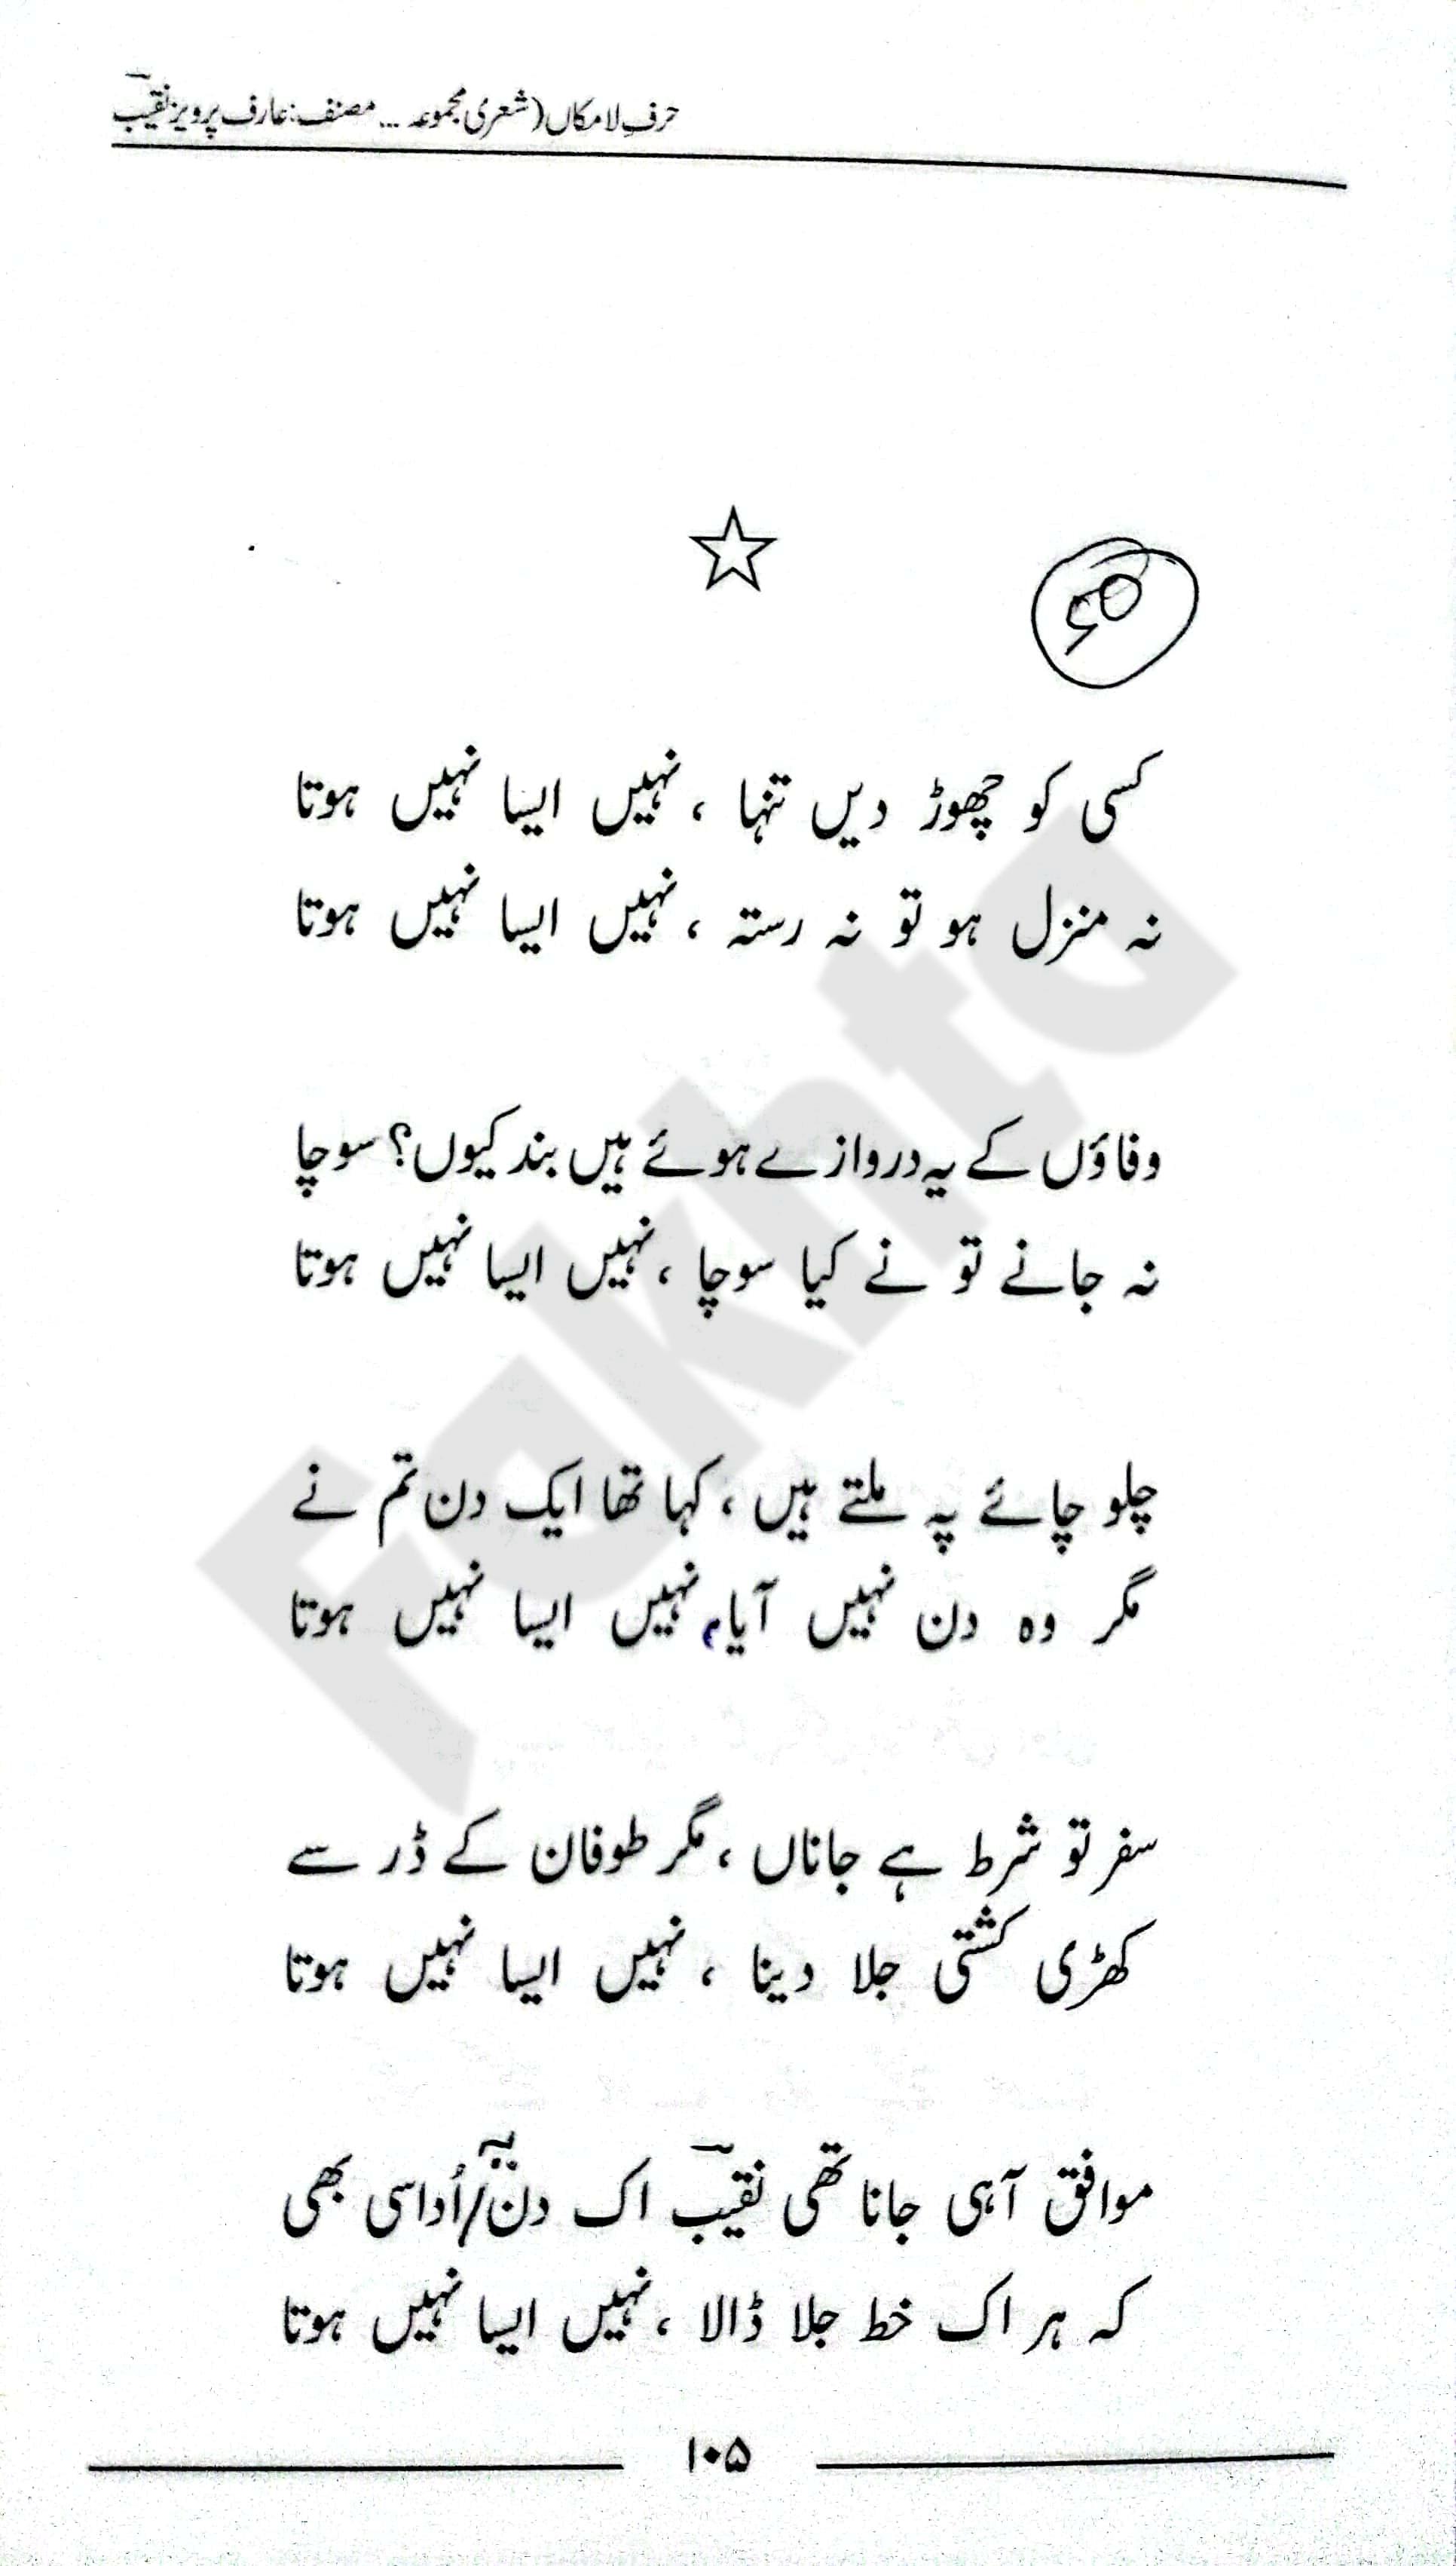 حرفِ لامکاں (شعری مجموعہ ... مصنف: عارف پرویز نقیبؔ
کسی کو چھوڑ دیں تنہا ، نہیں ایسا نہیں ہوتا
نہ منزل ہو تو نہ رستہ ، نہیں ایسا نہیں ہوتا
وفاؤں کے یہ دروازے ہوئے ہیں بند کیوں؟ سوچا
نہ جانے تو نے کیا سوچا ، نہیں ایسا نہیں ہوتا
چلو چائے پہ ملتے ہیں ، کہا تھا ایک دن تم نے
مگر وہ دن نہیں آیا، نہیں ایسا نہیں ہوتا
سفر تو شرط ہے جاناں ، مگر طوفان کے ڈر سے
کھڑی کشتی جلا دینا ، نہیں ایسا نہیں ہوتا
موافق آ ہی جانا تھی نقیبؔ اک دن/اُداسی بھی
کہ ہر اک خط جلا ڈالا ، نہیں ایسا نہیں ہوتا
۱۰۵
Fakhta